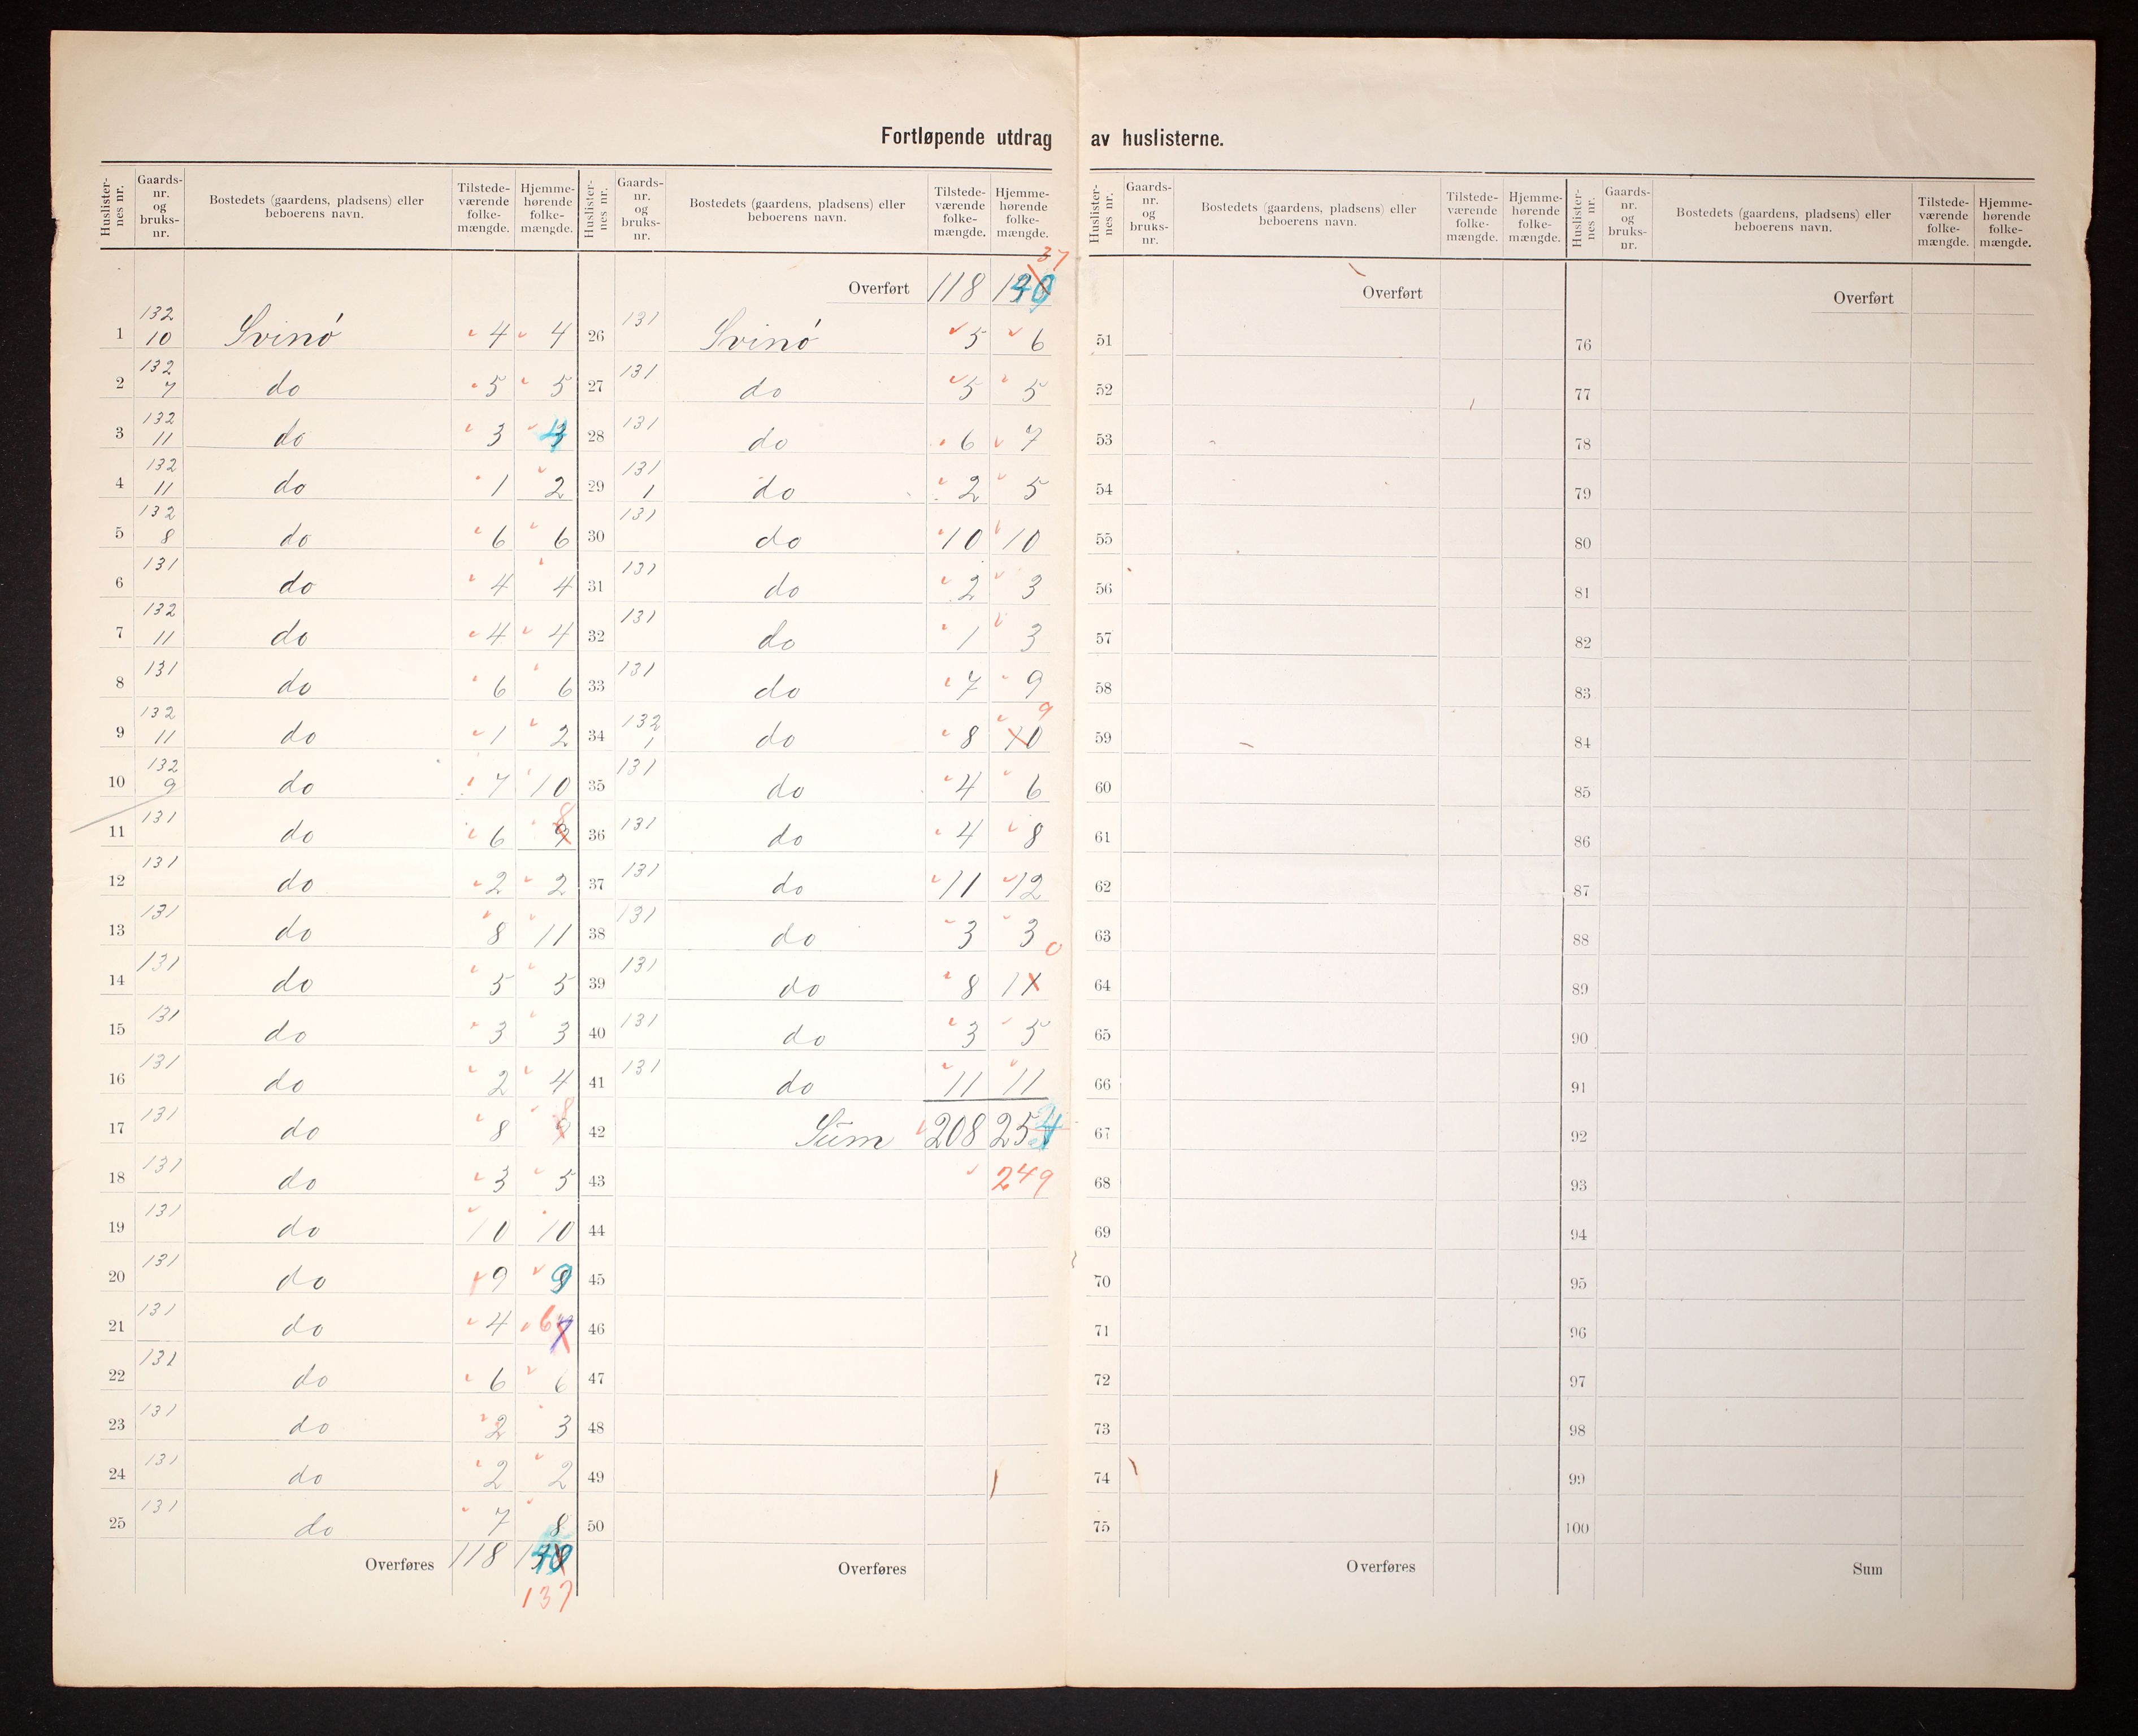 Fortløpende utdrag av huslisterne.
Huslister-nes nr. Gaards-nr. og bruks-nr. Bostedets (gaardens, pladsens) eller beboerens navn. Tilstede-værende folke-mængde. Hjemme-hørende folke-mængde.
1 132 10 Svinø 4 4
2 132 7 do 5 5
3 132 11 do 3 4
4 132 11 do 1 2
5 132 8 do 6 6
6 131 do 4 4
7 132 11 do 4 4
8 131 do 6 6
9 132 11 do 1 2
10 132 9 do 7 10
11 131 do 6 9 8
12 131 do 2 2
13 131 do 8 11
14 131 do 5 5
15 131 do 3 3
16 131 do 2 4
17 131 do 8 9 8
18 131 do 3 5
19 131 do 10 10
20 131 do 9 9
21 131 do 4 6 7
22 131 do 6 6
23 131 do 2 3
24 131 do 2 2
25 131 do 7 8
Overføres 118 140
137
Huslister-nes nr. Gaards-nr. og bruks-nr. Bostedets (gaardens, pladsens) eller beboerens navn. Tilstede-værende folke-mængde. Hjemme-hørende folke-mængde.
37
Overført 118 140
26 131 Svinø 5 6
27 131 do 5 5
28 131 do 6 7
29 131 1 do 2 5
30 131 do 10 10
31 131 do 2 3
32 131 do 1 3
33 131 do 7 9
34 132 1 do 8 10 9
35 131 do 4 6
36 131 do 4 8
37 131 do 11 12
38 131 do 3 3
39 131 do 8 11 0
40 131 do 3 5
41 131 do 11 11
42 Sum 208 254
43 249
44
45
46
47
48
49
50
Overføres
Huslister-nes nr. Gaards-nr. og bruks-nr. Bostedets (gaardens, pladsens) eller beboerens navn. Tilstede-værende folke-mængde. Hjemme-hørende folke-mængde.
Overført
51
52
53
54
55
56
57
58
59
60
61
62
63
64
65
66
67
68
69
70
71
72
73
74
75
Overføres
Huslister-nes nr. Gaards-nr. og bruks-nr. Bostedets (gaardens, pladsens) eller beboerens navn. Tilstede-værende folke-mængde. Hjemme-hørende folke-mængde.
Overført
76
77
78
79
80
81
82
83
84
85
86
87
88
89
90
91
92
93
94
95
96
97
98
99
100
Sum